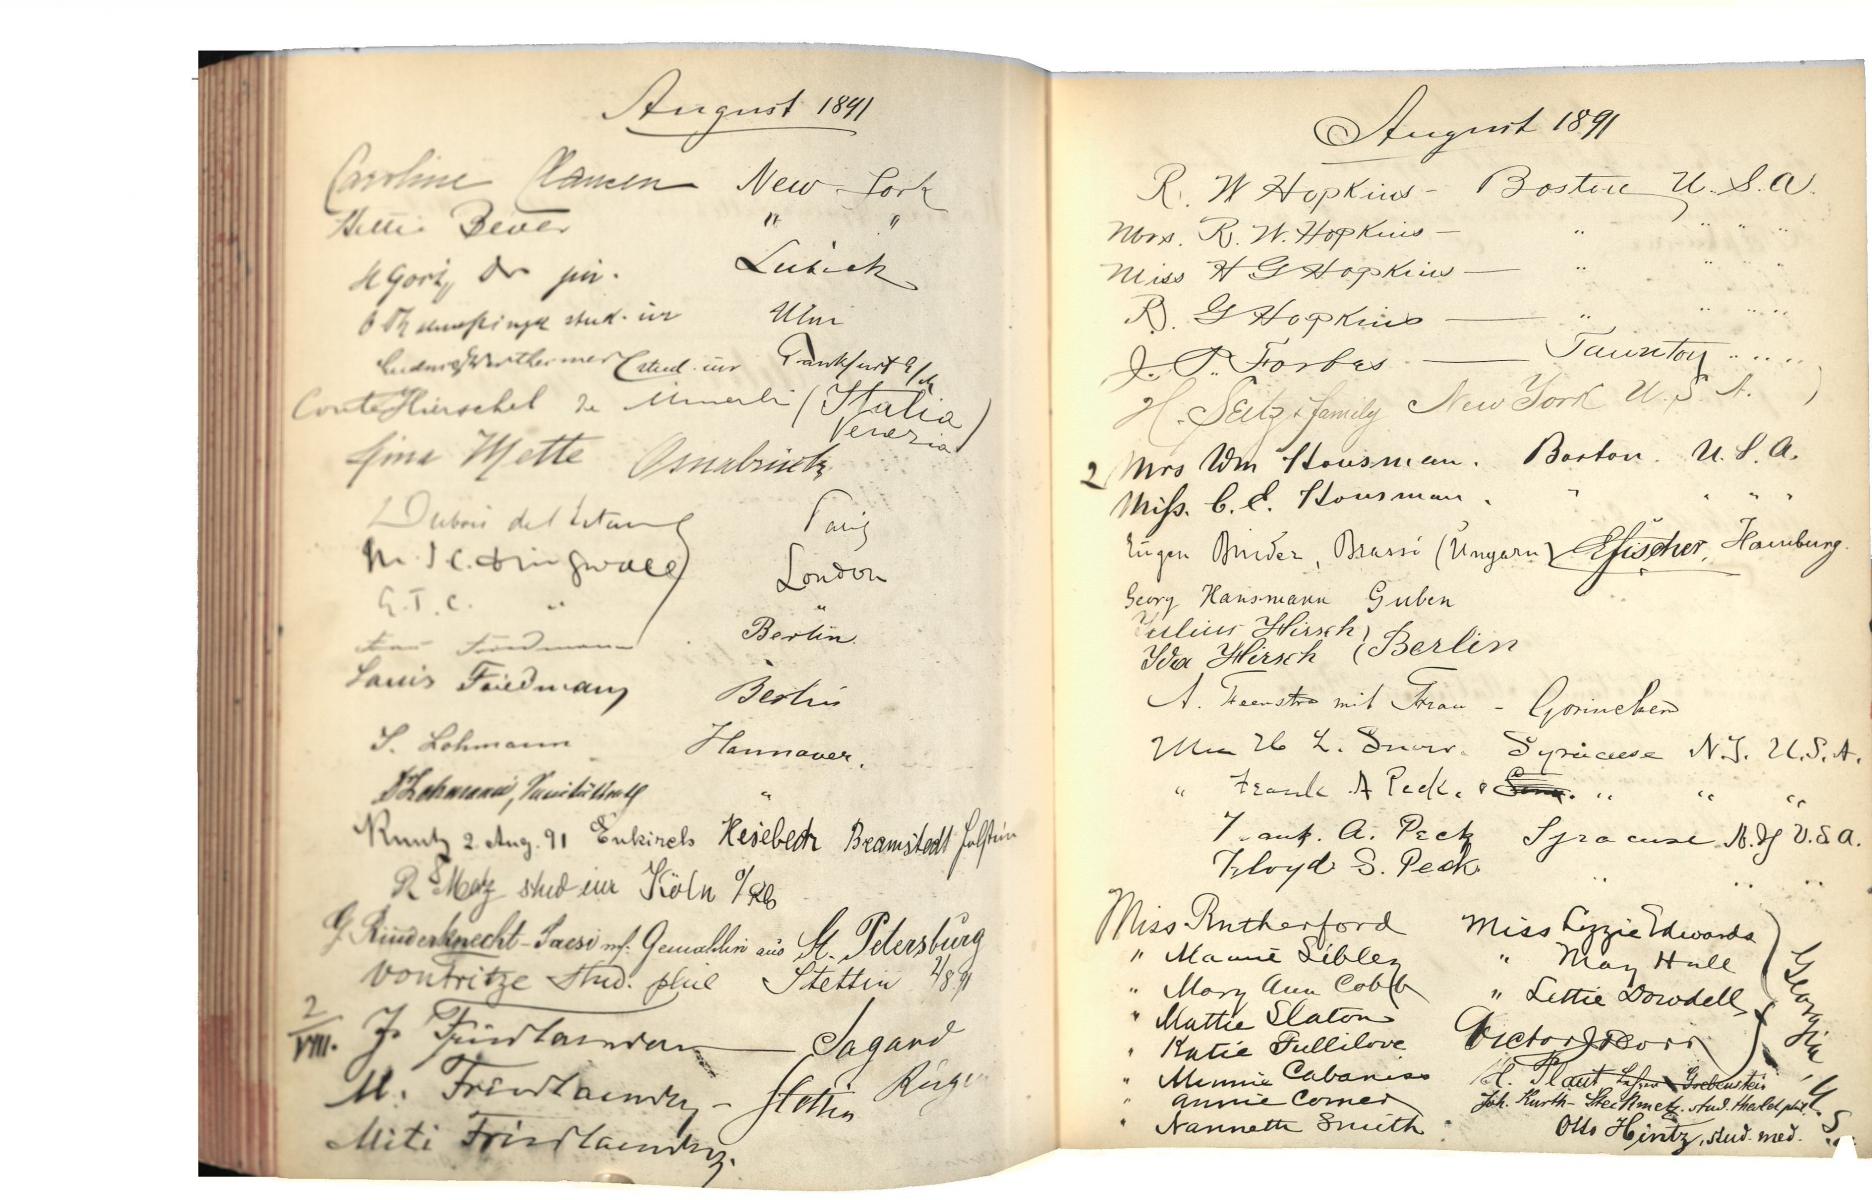 August 1891
Caroline Clausen New York
Hettie Bever " "
Lübeck
stud. iur Ulm
Ludwig Wertheimer stud. iur Frankfurt a/M
Conte Hierschel de Minerbi (Italia
Venezia)
Mette Osnabrück
Dubois de l'Estang Paris
M. Dingwall London
G. T. C. " "
Frau Friedmann Berlin
Louis Friedmann Berlin
S. Lohmann Hannover.
Lohmann, Sanitätsrath "
Kuntz 2. Aug. 91 Enkirch Bramstedt Holstein
R. Metz stud iur Köln a/Rh
G Rinderknecht-Saesi m. Gemahlin aus St. Petersburg
von Fritze stud. phil Stettin 2/8 91
2/VIII. J. Friedlaender Sagard
M. Friedlaender - Stettin Rügen
Miti Friedlaender.
August 1891
R. W Hopkins - Boston U. S. A.
Mrs. R. W. Hopkins - " " " "
Miss H G Hopkins - " " " "
R. G Hopkins - " " " "
J. P. Forbes - Taunton " " " "
H. Seitz & family New York U. S. A.
2 Mrs Wm Housman. Boston. U. S. A.
Miss. C. E. Housman. " " " "
Eugen Binder, Brassó (Ungarn) E Fischer, Hamburg.
Georg Hansmann Guben
Julius Hirsch
Ida Hirsch Berlin
A. Feenstra mit Frau - Gorinchem
H. L. Snow. Syracuse N.Y. U.S.A.
" Frank A Peck. " " "
Frank. A. Peck Syracuse N.Y U.S.A.
Floyd S. Peck " " "
Miss Rutherford Miss Lizzie Edwards
" Mamie Sibley " May Hull
" Mary Ann Cobb " Lettie Dowdell
" Mattie Slaton Victor J Dorr
" Katie Fullilove Georgia, U. S.
" Minnie Cabaniss H. Plaut Grebenstein
" Annie Comer Joh. Kurth - Steckmetz. stud. theol et phil.
" Nannette Smith Otto Hintz, stud. med.